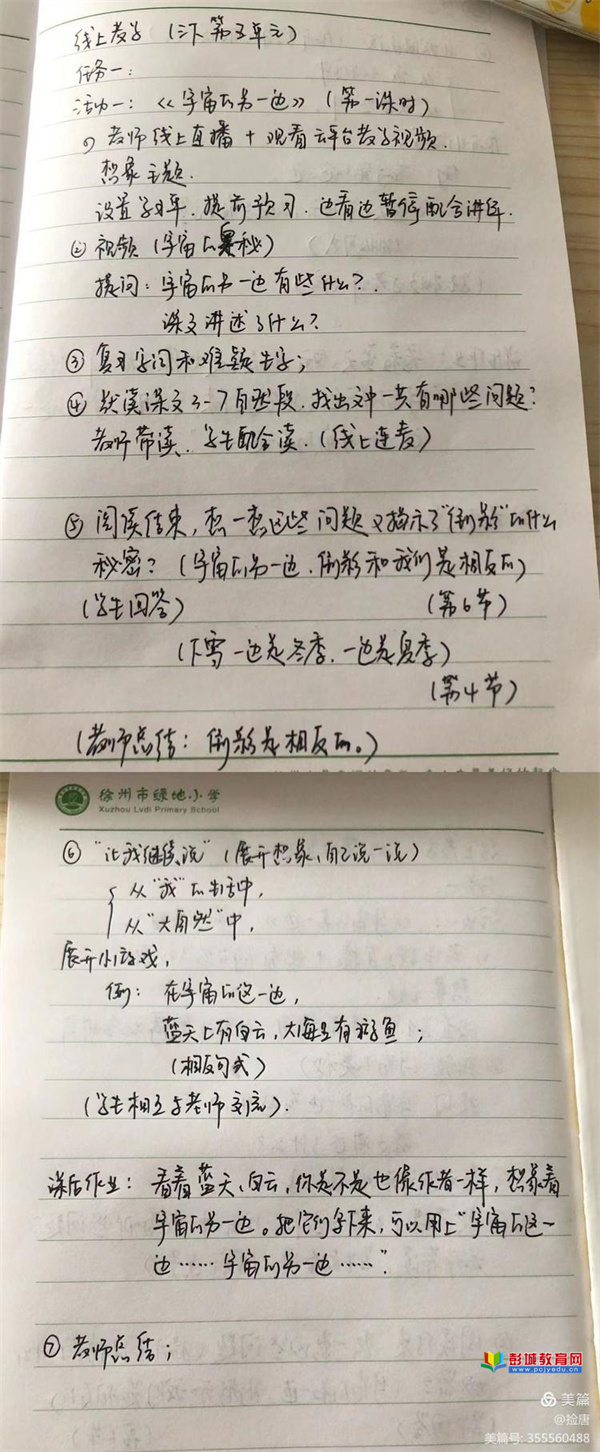 线上教学（三下第五单元）
任务一：
活动一：《宇宙的另一边》（第一课时）
① 老师线上直播 + 观看云平台教学视频.
想象主题.
设置学习单、提前预习、边看边暂停配合讲解.
② 视频（宇宙的奥秘）
提问：宇宙的另一边有些什么？
课文讲述了什么？
③ 复习字词和难题生字；
④ 默读课文3-7自然段，找出文中一共有哪些问题？
老师带读、学生配合读.（线上连麦）
⑤ 阅读结束，想一想这些问题又揭示了“倒影”的什么
秘密？（宇宙的另一边，倒影和我们是相反的）
（学生回答）（第6节）
（下雪一边是冬季，一边是夏季）
（第4节）
（教师总结：倒影是相反的。）
徐州市绿地小学
Xuzhou Lvdi Primary School
⑥ “让我继续说”（展开想象，自己说一说）
从“我”的生活中，
从“大自然”中，
展开小游戏，
例：在宇宙的这一边，
蓝天上有白云，大海里有游鱼；
（相反句式）
（学生相互与老师交流）.
课后作业：看着蓝天、白云，你是不是也像作者一样，想象着
宇宙的另一边。把它们写下来，可以用上“宇宙的这一
边……宇宙的另一边……”
⑦ 老师总结；
彭城教育网
www.pcjyedu.cn
美篇
@捡唐
美篇号: 355560488